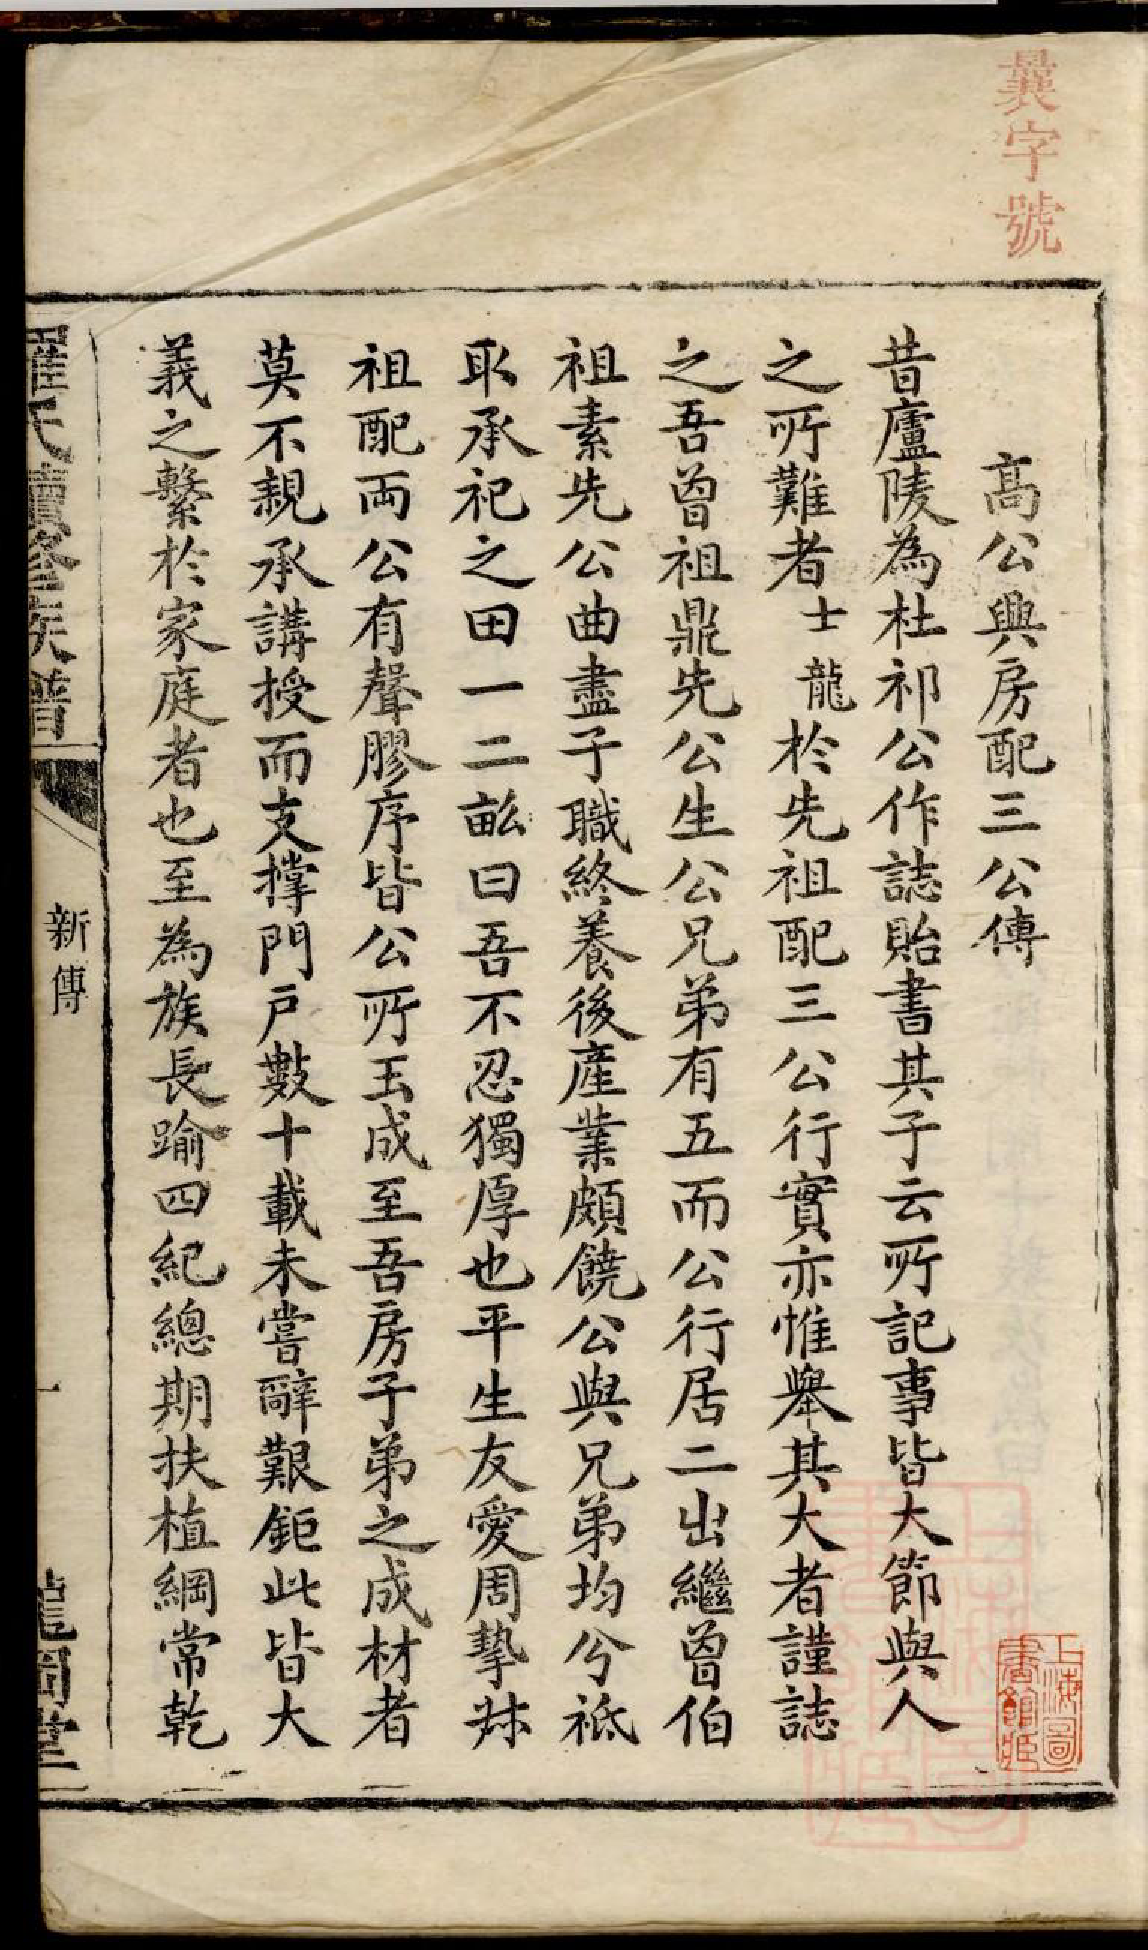 曩字號
高公興房配三公傳
昔廬陵為杜祁公作誌貽書其子云所記事皆大節與人
之所難者士龍於先祖配三公行實亦惟舉其大者謹誌
之吾曾祖鼎先公生公兄弟有五而公行居二出繼曾伯
祖素先公曲盡子職終養後產業頗饒公與兄弟均分祗
取承祀之田一二畝曰吾不忍獨厚也平生友愛周摯妹
祖配両公有聲膠序皆公所玉成至吾房子弟之成材者
莫不親承講授而支撐門戶數十載未嘗辭艱鉅此皆大
義之繫於家庭者也至為族長踰四紀總期扶植綱常乾
羅氏續修族譜
新傳
一
龍岡堂
上海圖
書館藏